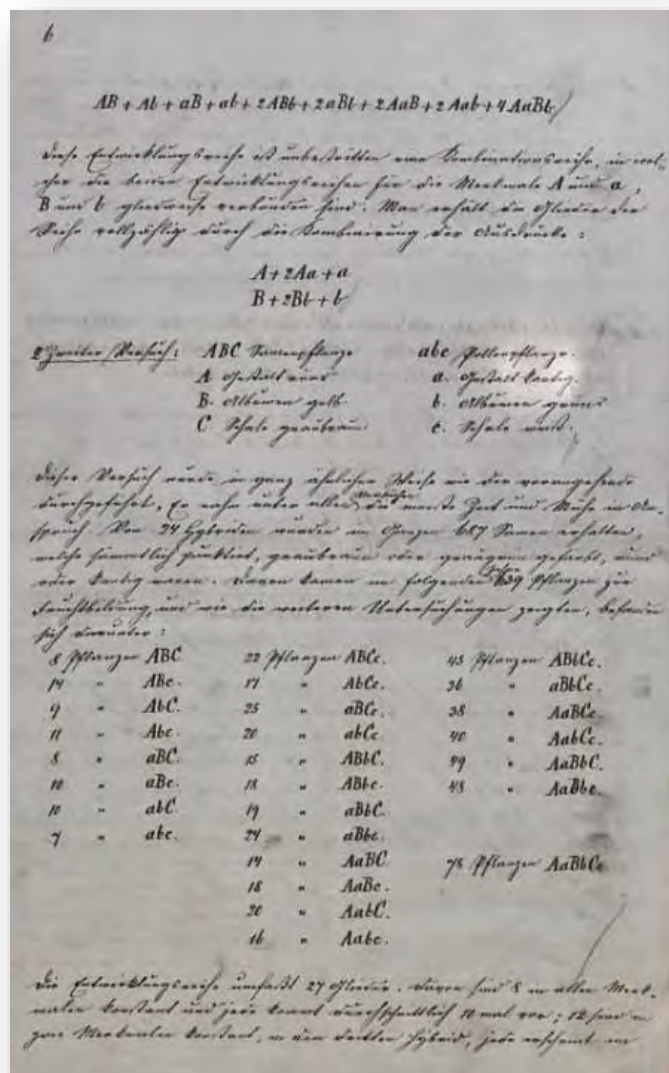 6
AB + Ab + aB + ab + 2ABb + 2aBb + 2AaB + 2Aab + 4AaBb
Diese Entwicklungsreihe ist unbestritten eine Kombinationsreihe, in wel-
cher die beiden Entwicklungsreihen für die Merkmale A und a,
B und b gliedweise verbunden sind. Man erhält die Glieder der
Reihe vollzählig durch die Kombinirung der Ausdrücke:
A + 2Aa + a
B + 2Bb + b
2 Zweiter Versuch: ABC Samenpflanze abc Pollenpflanze.
A Gestalt rund a. Gestalt kantig.
B. Albumen gelb b. Albumen grün
C Schale graubraun c. Schale weiß.
Dieser Versuch wurde in ganz ähnlicher Weise wie der vorangehende
durchgeführt. Er nahm unter allen Versuchen die meiste Zeit und Mühe in An-
spruch. Von 24 Hybriden wurden im Ganzen 687 Samen erhalten,
welche sämmtlich punktirt, graubraun oder graugrün gefärbt, rund
oder kantig waren. Davon kamen im folgenden Jahre 639 Pflanzen zur
Fruchtbildung, und wie die weiteren Untersuchungen zeigten, befanden
sich darunter:
8 Pflanzen ABC 22 Pflanzen ABCc. 45 Pflanzen ABbCc.
14 " ABc. 17 " AbCc. 36 " aBbCc.
9 " AbC. 25 " aBCc. 38 " AaBCc.
11 " Abc. 20 " abCc 40 " AabCc.
8 " aBC. 15 " ABbC. 49 " AaBbC.
10 " aBc. 18 " ABbc. 48 " AaBbc.
10 " abC. 19 " aBbC.
7 " abc. 24 " aBbc.
14 " AaBC. 78 Pflanzen AaBbCc
18 " AaBc.
20 " AabC.
16 " Aabc.
Die Entwicklungsreihe umfaßt 27 Glieder. Davon sind 8 in allen Merk-
malen konstant und jede kommt durchschnittlich 10 mal vor; 12 sind in
zwei Merkmalen konstant, in dem dritten hybrid, jede erscheint im